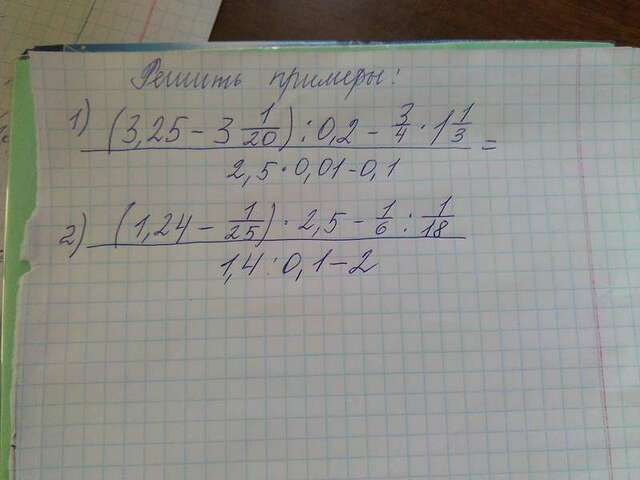 Решить примеры:
1) (3,25 - 3 1/20) : 0,2 - 3/4 · 1 1/3 =
2,5 · 0,01 - 0,1
2) (1,24 - 1/25) · 2,5 - 1/6 : 1/18
1,4 : 0,1 - 2